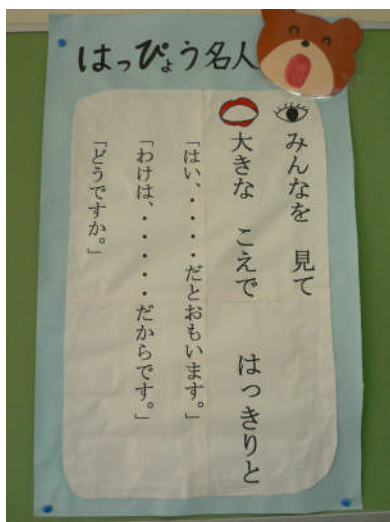 はっぴょう名人
みんなを　見て
大きな　こえで　はっきりと
「はい、・・・・だとおもいます。」
「わけは、・・・・・だからです。」
「どうですか。」